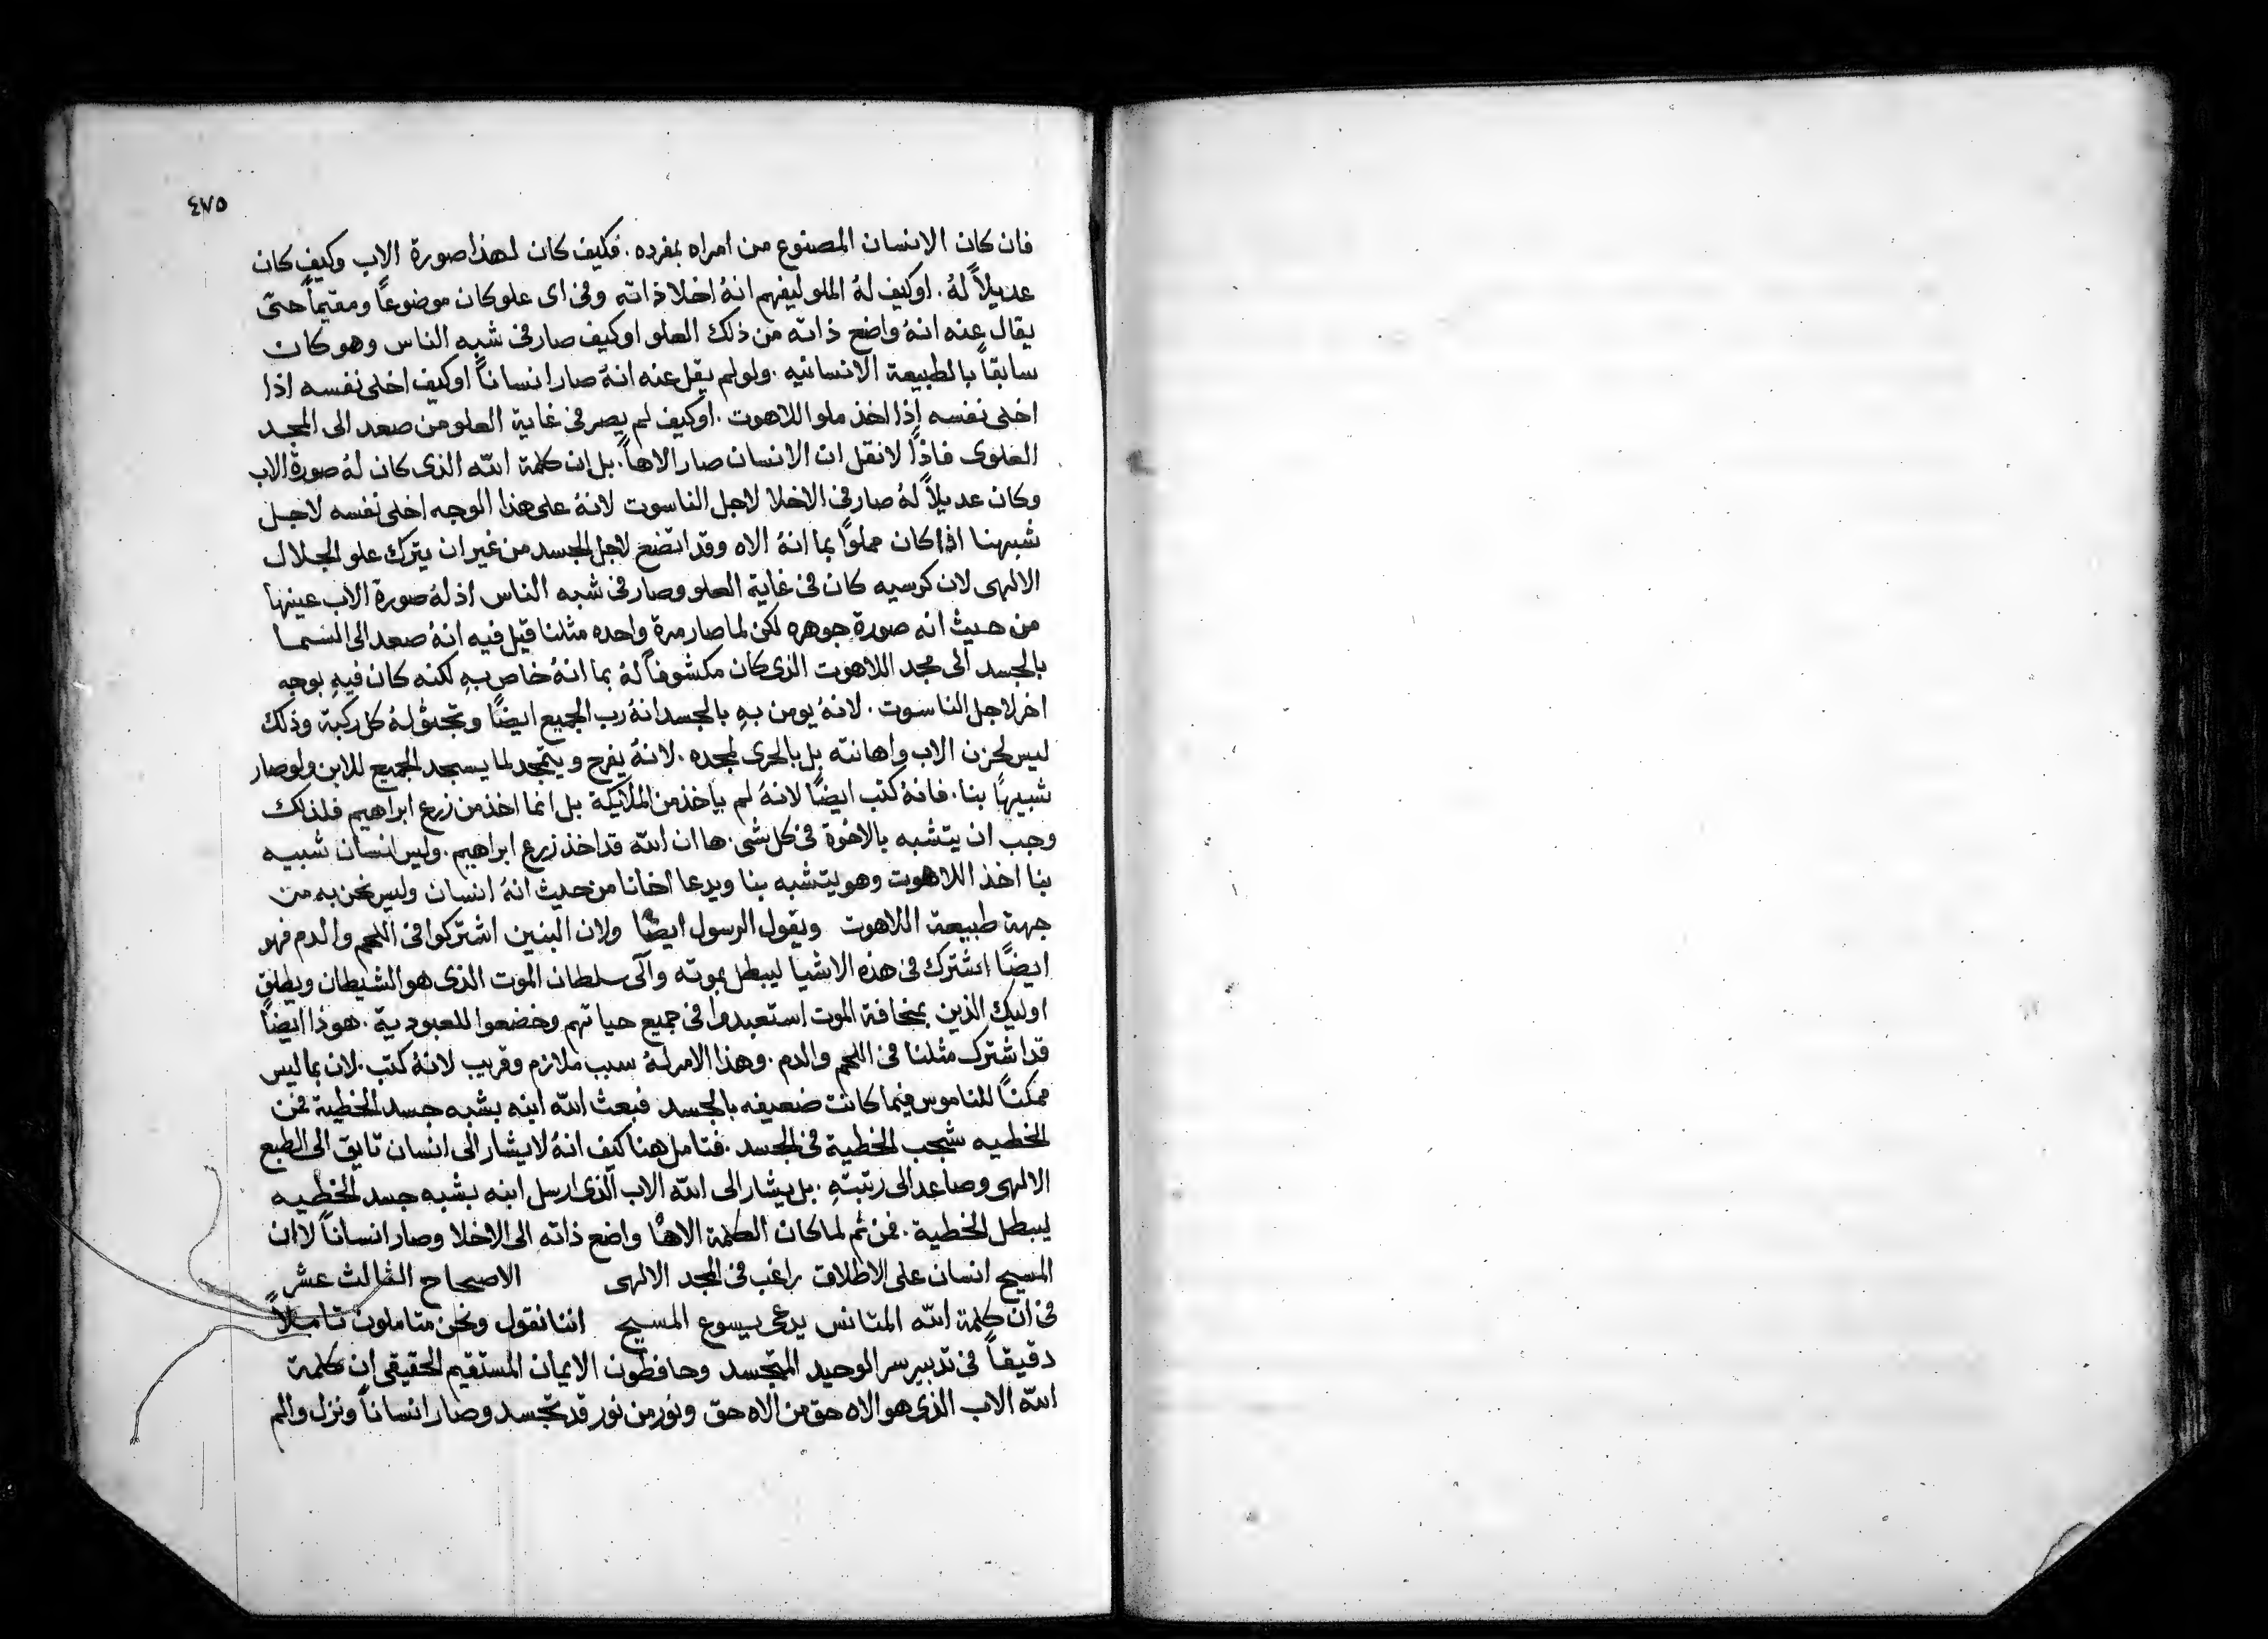 ٤٧٥
فان كان الانسان المصنوع من امراه بمفرده. فكيف كان لهذا صورة الاب وكيف كان
عديلاً لهُ. اوكيف لهُ الملو ليفهم انهُ اخلا ذاته وفى اى علو كان موضوعاً ومقيماً حتى
يقال عنه انهُ واضع ذاته من ذلك العلو اوكيف صار فى شبه الناس وهو كان
سابقاً بالطبيعة الانسانيه. ولو لم يقل عنه انهُ صار انساناً اوكيف اخلى نفسه اذا
اخلى نفسه اذا اخذ ملو اللاهوت. اوكيف لم يصر فى غاية العلو من صعد الى المجد
العلوى فاذاً لا نقل ان الانسان صار الاهاً. بل ان كلمة الله الذى كان لهُ صورة الاب
وكان عديلاً لهُ صار فى الاخلا لاجل الناسوت لانهُ على هذا الوجه اخلى نفسه لاجل
شبهنا اذ كان مملوًا بما انهُ الاه وقد اتضع لاجل الجسد من غير ان يترك علو الجلال
الالهى لان كرسيه كان فى غاية العلو وصار فى شبه الناس اذ لهُ صورة الاب عينها
من حيث انه صورة جوهره لكن لما صار مرة واحده مثلنا قيل فيه انهُ صعد الى السما
بالجسد الى مجد اللاهوت الذى كان مكشوفاً لهُ بما انهُ خاص بهِ لكنه كان فيهِ بوجه
اخر لاجل الناسوت. لانهُ يومن بهِ بالجسد انهُ رب الجميع ايضًا وتجثو لهُ كل ركبة وذلك
ليس لحزن الاب واهانته بل بالحرى لمجده. لانهُ يفرح ويتمجد لما يسجد الجميع للابن ولو صار
شبيهًا بنا. فانهُ كتب ايضًا لانهُ لم ياخذ من الملايكة بل انما اخذ من زرع ابراهيم فلذلك
وجب ان يتشبه بالاخوة فى كل شى. ها ان الله قد اخذ زرع ابراهيم. وليس انسان شبيه
بنا اخذ اللاهوت وهو يتشبه بنا ويدعا اخانا من حيث انهُ انسان وليس نحن به من
جهة طبيعة اللاهوت ويقول الرسول ايضًا ولان البنين اشتركوا فى اللحم والدم فهو
ايضًا اشترك فى هذه الاشيا ليبطل بموته والى سلطان الموت الذى هو الشيطان ويطلق
اوليك الذين بمخافة الموت استعبدوا فى جميع حياتهم وخضعوا للعبودية. هوذا ايضاً
قد اشترك مثلنا فى اللحم والدم. وهذا الامر لهُ سبب ملازم وقريب لانهُ كتب. لان بما ليس
ممكنًا للناموس فيما كانت ضعيفه بالجسد فبعث الله ابنه بشبه جسد الخطية فمن
الخطيه شجب الخطية فى الجسد. فتامل هنا كيف انهُ لا يشار الى انسان تايق الى الطبع
الالهى وصاعد الى رتبتهِ. بل يشار الى الله الاب الذى ارسل ابنه بشبه جسد الخطيه
ليبطل الخطية. فمن ثم لما كان الكلمة الاهًا واضع ذاته الى الاخلا وصار انساناً لا ان
المسيح انسان على الاطلاق راغب فى المجد الالهى الاصحاح الثالث عشر
فى ان كلمة الله المتانس يدعى يسوع المسيح اننا نقول ونحن متاملون تاملاً
دقيقاً فى تدبير سر الوحيد المتجسد وحافظون الايمان المستقيم الحقيقى ان كلمة
الله الاب الذى هو الاه حق من الاه حق ونور من نور قد تجسد وصار انساناً ونزل والم